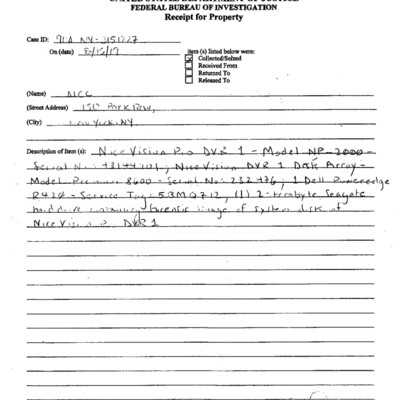 UNITED STATES DEPARTMENT OF JUSTICE
FEDERAL BUREAU OF INVESTIGATION
Receipt for Property
Case ID: 90A NY-3151227
On (date) item (s) listed below were:
Collected/Seized
Received From
Returned To
Released To
(Name) MCC
(Street Address) 150 Park Row,
(City) New York, NY
Description of Item (s): Nice Vision Pro DVR 1 - Model NP-2000-
Serial No: 43144101, Nice Vision DVR 1 Disk Array-
Model 8600 - Serial No: 232476; 1 Dell Poweredge
R420 - Service Tag: 5BMQ712, (1) 2 terabyte Seagate
hard drive containing forensic image of system disk of
Nice Vision Pro DVR 1